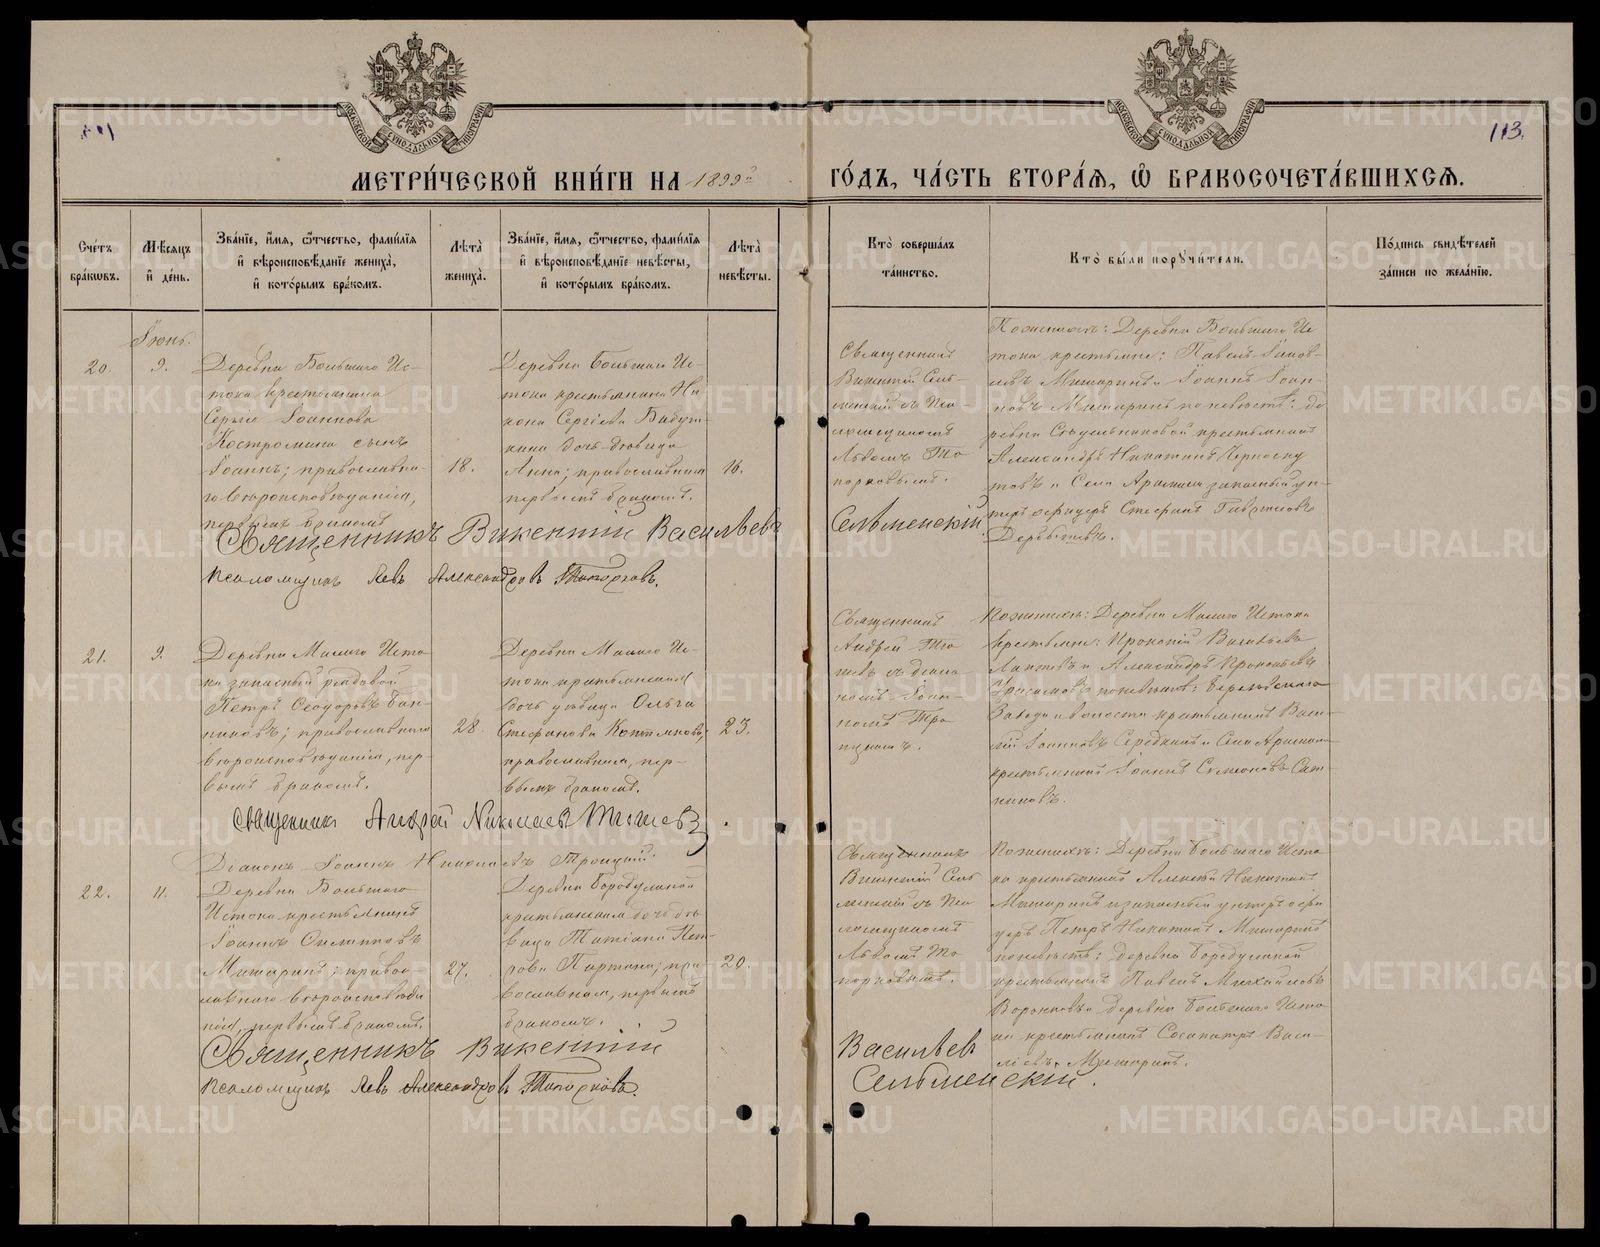 МОСКОВСКОЙ СѴНОДАЛЬНОЙ ТИПОГРАФІИ
МОСКОВСКОЙ СѴНОДАЛЬНОЙ ТИПОГРАФІИ
113.
МЕТРИ́ЧЕСКОЙ КНИ́ГИ НА 1899й ГО́ДЪ, ЧА́СТЬ ВТОРА́Я, Ѽ БРАКОСОЧЕТА́ВШИХСЯ.
Сче́тъ бра́кѡвъ.
Мѣ́сяцъ и҆ де́нь.
Зва́нїе, и҆́мя, ѻ҆́тчество, фами́лїя и҆ вѣроисповѣ́данїе жениха̀, и҆ кото́рымъ бра́комъ.
Лѣта̀ жениха̀.
Зва́нїе, и҆́мя, ѻ҆́тчество, фами́лїя и҆ вѣроисповѣ́данїе невѣ́сты, и҆ кото́рымъ бра́комъ.
Лѣта̀ невѣ́сты.
Кто̀ соверша́лъ та́инство.
Кто̀ бы́ли порꙋчи́тели.
По́дпись свидѣ́телей за́писи по жела́нїю.
Іюнь.
20.
9.
Деревни Большаго Ис-
тока крестьянина
Сергія Іоаннова
Костромина сынъ
Іоаннъ; православна-
го вѣроисповѣданія,
первымъ бракомъ
18.
Деревни Большаго Ис-
тока крестьянина Ни
кона Сергіева Бабуш-
кина дочь девица
Анна; православная
первымъ бракомъ.
16.
Священникъ
Викентій Сель-
менскій съ Пса-
ломщикомъ
Львомъ То
порковымъ.
По женихѣ: Деревни Большаго Ис
тока крестьяне: Павелъ Іаков-
левъ Мишаринъ и Іоаннъ Іоан-
новъ Мишаринъ по невѣстѣ: де
ревни Седельниковой крестьянинъ
Александръ Никитинъ
и Села Арамили запасный ун-
теръ офицеръ Стефанъ Гавриловъ
Дерябинъ.
Священникъ Викентій Васильевъ
Сельменскій.
Псаломщикъ Левъ Александровъ Топорковъ.
21.
9.
Деревни Малаго Исто
ка запасный рядовой
Петръ Ѳеодоровъ Бан-
никовъ; православнаго
вѣроисповѣданія, пер
вымъ бракомъ.
28.
Деревни Малаго Ис-
тока крестьянская
дочь девица Ольга
Стефанова Коптякова,
православная, пер-
вымъ бракомъ.
23.
Священникъ
Андрей
съ діако
номъ Іоан-
номъ Тро
ицкимъ.
По женихѣ: Деревни Малаго Истока
крестьяне: Прокопій Васильевъ
и Александръ Прокопьевъ
Герасимовъ по невѣстѣ: Березовскаго
Завода и волости крестьянинъ Васи-
лій Іоанновъ Середкинъ и Села Арамили
крестьянинъ Іоаннъ Симеоновъ Сат-
никовъ.
Священникъ Андрей Николаевъ
Діаконъ Іоаннъ Николаевъ Троицкій.
22.
11.
Деревни Большаго
Истока крестьянинъ
Іоаннъ Филипповъ
Мишаринъ; правос-
лавнаго вѣроисповѣда
нія, первымъ бракомъ.
27.
Деревни Бородулиной
крестьянская дочь дѣ
вица Татіана Пет-
рова Партина; пра-
вославная, первымъ
бракомъ.
20.
Священникъ
Викентій Сель
менскій съ Пса
ломщикомъ
Львомъ То
порковымъ.
По женихѣ: Деревни Большаго Исто
ка крестьянинъ Алексѣй Никитинъ
Мишаринъ и запасный унтеръ офи
церъ Петръ Никитинъ Мишаринъ
по невѣстѣ: деревни Бородулиной
крестьянинъ Павелъ Михайловъ
Воронковъ и деревни Большаго Исто
ка крестьянинъ Сосипатръ Васи-
льевъ Мишаринъ.
Священникъ Викентій
Васильевъ
Сельменскій.
Псаломщикъ Левъ Александровъ Топорковъ.
METRIKI.GASO-URAL.RU